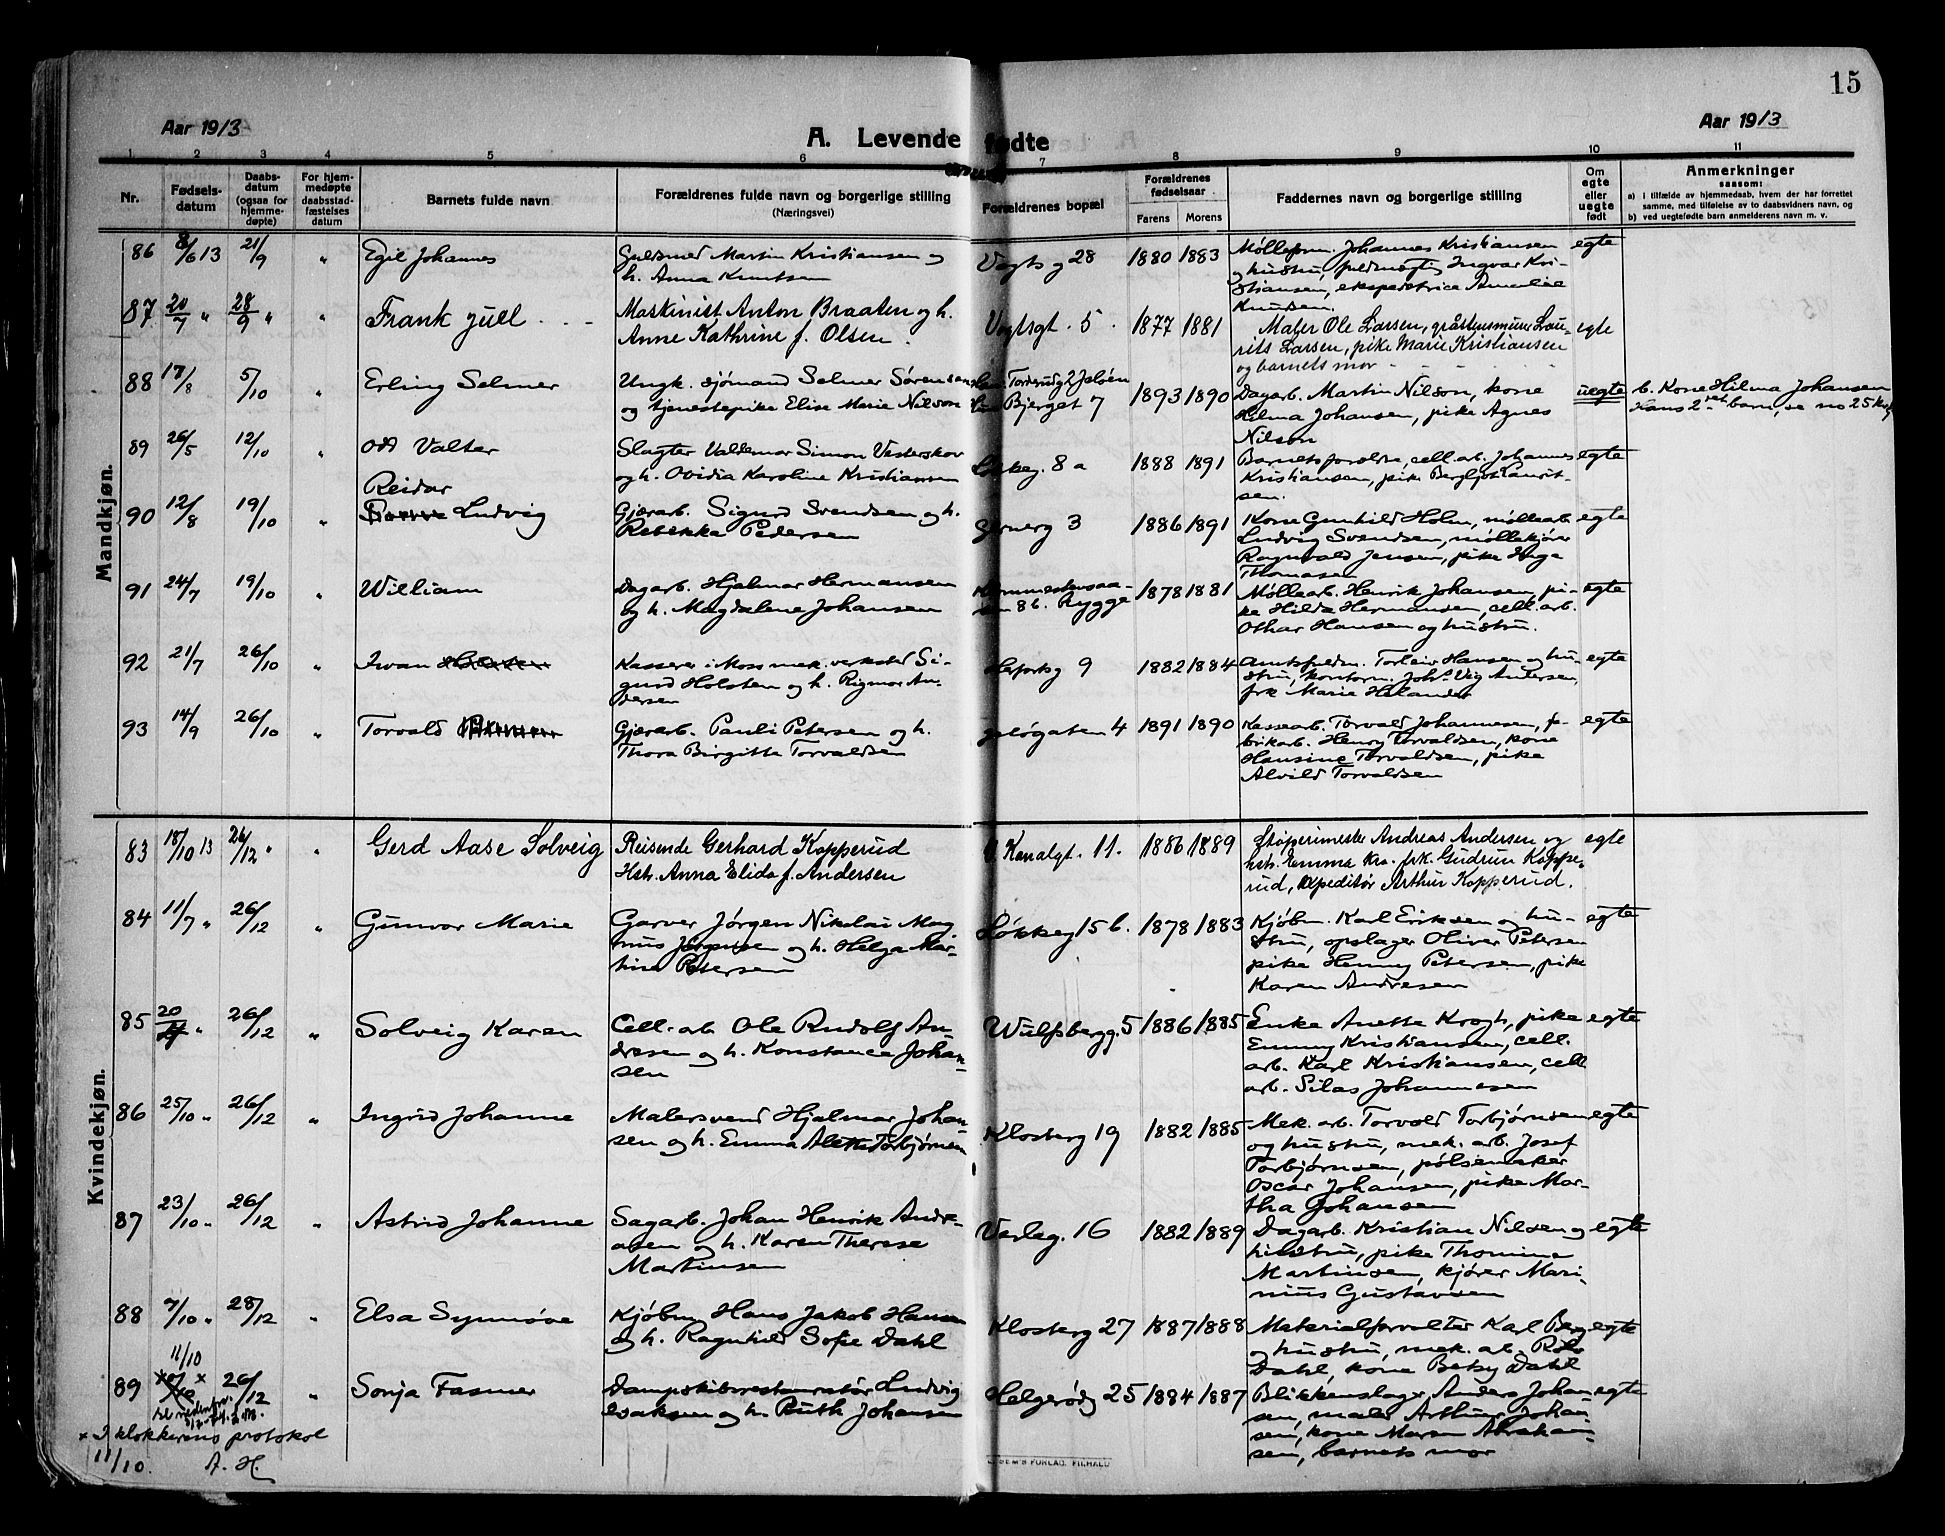 15
Aar 1913
A. Levende fødte
Aar 1913
1 2 3 4 5 6 7 8 9 10 11
Nr.
Fødsels-
datum
Daabs-
datum
(ogsaa for
hjemme-
døpte)
For hjem-
medøpte
daabsstad-
fæstelses
datum
Barnets fulde navn
Forældrenes fulde navn og borgerlige stilling
(Næringsvei)
Forældrenes bopæl
Forældrenes
fødselsaar
Farens
Morens
Faddernes navn og borgerlige stilling
Om
egte
eller
uegte
født
Anmerkninger
saasom:
a) i tilfælde av hjemmedaab, hvem der har forrettet
samme, med tilføielse av to daabsvidners navn, og
b) ved uegtefødte barn anmelderens navn m. v.
Mandkjøn.
86 8/6 13 21/9 " Egil Johannes
Gulsmed Martin Kristiansen og
h. Anna Knutsen
Vogtsg 28 1880 1883
Mølleform. Johannes Kristiansen
og hustru, fuldmægtig Ingvar Kri-
stiansen, ekspeditrice Amalie
Knudsen.
egte
87 20/7 " 28/9 " " Frank Juell
Maskinist Anton Braaten og h.
Anne Kathrine f. Olsen.
Vogtsgt. 5. 1877 1881
Maler Ole Larsen, gråstensmurer Lau-
rits Larsen, pike Marie Kristiansen
og barnets mor
egte
88 17/8 5/10 " Erling Selmer
Ungk. sjømand Selmer Sørensen
og tjenestepike Elise Marie Nilsen
Torderudg 2 Jeløen
Bjerget 7
1893 1890
Dagarb. Martin Nilson, kone
Hilma Johansen, pike Agnes
Nilson
uegte
b. Kone Hilma Johansen
Hans 2det barn, se no 25 kvk
89 26/5 12/10 " Odd Valter
Slagter Valdemar Simon Vesterskov
og h. Ovidia Karoline Kristiansen
Løkkeg. 8a 1888 1891
Barnets forældre, cell. arb. Johannes
Kristiansen, pike Bergljot Laurit-
sen.
egte
90 12/8 19/10 " Reidar
Ludvig
Gjærarb. Sigurd Svendsen og h.
Rebekka Pedersen
Gernerg 3 1886 1891
Kone Gunhild Holm, møllearb
Ludvig Svendsen, møllekjører
Ragnvald Jensen, pike Inga
Thomasen
egte
91 24/7 19/10 " William
Dagarb. Hjalmar Hermansen
og h. Magdalene Johansen
8 b. Rygge
1878 1881
Møllearb. Henrik Johansen, pi-
ke Hilda Hermansen, cell. arb.
Othar Hansen og hustru.
egte
92 21/7 26/10 " Iwan
Kasserer i Moss mek. verksted Si-
gurd Holsten og h. Rigmor An-
dersen
Herfordsg 9 1882 1884
Amtsfuldm. Torleiv Hansen og hu-
stru, kontorm. Johs. Vig Andersen,
frk Marie Helander
egte
93 14/9 26/10 " Torvald
Gjærarb. Pauli Petersen og h.
Thora Birgitte Torvaldsen
Jeløgaten 4 1891 1890
Kassearb. Torvald Johannesen, fa-
brikarb. Henry Torvaldsen, kone
Hansine Torvaldsen, pike
Alvild Torvaldsen
egte
Kvindekjøn.
83 18/10 13 26/12 " " Gerd Aase Solveig
Reisende Gerhard Kopperud
Hstr. Anna Elida f. Andersen
Kanalgt. 11. 1886 1889
Støperimester Andreas Andersen og
hstr. Emma Kra. frk. Gudrun Koppe-
rud, expeditør Arthur Kopperud.
egte
84 11/7 " 26/12 " Gunvor Marie
Garver Jørgen Nikolai Mag-
nus Jørgensen og h. Helga Mar-
tine Petersen
Løkkeg 15 b. 1878 1883
Kjøbm. Karl Eriksen og hu-
stru, opslager Oliver Petersen
pike Henny Petersen, pike
Karen Andresen
egte
85 20 " 26/12 " Solveig Karen
Cell. arb Ole Rudolf An-
dresen og h. Konstance Johan-
sen
Wulfsbergg. 5 1886 1885
Enke Anette Krogh, pike
Emmy Kristiansen, cell.
arb. Karl Kristiansen, cell
arb. Silas Johannesen
egte
86 25/10 " 26/12 " Ingrid Johanne
Malersvend Hjalmar Johan-
sen og h. Emma Alette Torbjørnsen
Klosterg 19 1882 1885
Mek. arb. Torvald Torbjørnsen
og hustru, mek. arb. Josef
Torbjørnsen, pølsemaker
Oscar Johansen, pike Mar-
tha Johansen
egte
87 23/10 " 26/12 " Astrid Johanne
Sagarb. Johan Henrik Andre-
asen og h. Karen Therese
Martinsen
Varleg. 16 1882 1889
Dagarb. Kristian Nilsen og
hustru, pike Thomine
Martinsen, kjører Mari-
nius Gustavsen
egte
88 7/10 " 28/12 " Elsa Synnøve
Kjøbm Hans Jakob Hansen
og h. Ragnhild Sofie Dahl
Klosterg 27 1887 1888
Materialforvalter Karl Berg
og hustru, mek. ab. Rolv
Dahl, kone Betsy Dahl
egte
89 11/10 × 26/12 " Sonja Fasmer
Dampskibsrestauratør Ludvig
Isaksen og h. Ruth Johansen
Helgerødg 25 1884 1887
Blikkenslager Anders Johan-
sen, maler Arthur Johan-
sen, kone Maren Abraham-
sen, barnets mor
egte
× I klokkerens protokol
11/10. A. H.
FORLAG.